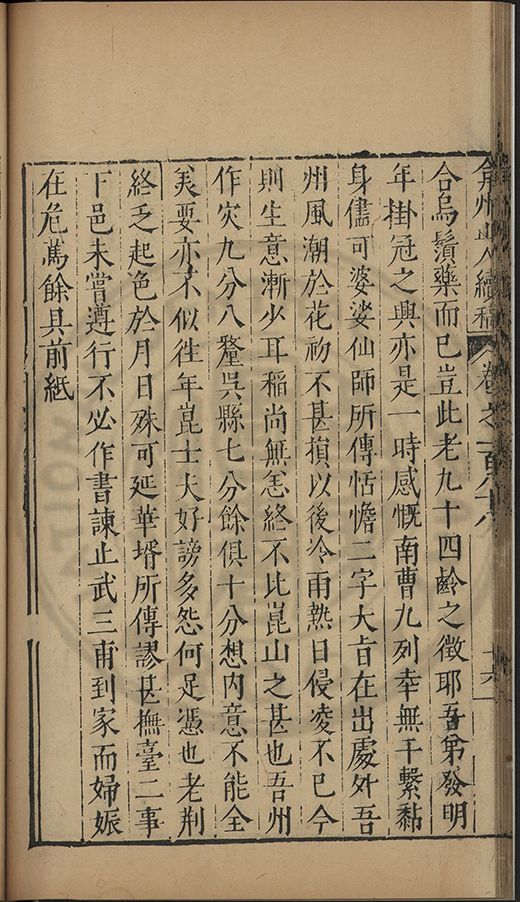 弇州山人續稿 卷之一百八十六 十六
合烏鬚藥而已豈此老九十四齡之徵耶吾弟發明
年掛冠之興亦是一時感慨南曹九列幸無干繫黏
身儘可婆娑仙師所傳恬憺二字大旨在出處外吾
州風潮於花礽不甚損以後冷雨熱日侵凌不已今
則生意漸少耳稻尚無恙終不比崑山之甚也吾州
作灾九分八釐吳縣七分餘俱十分想内意不能全
美要亦不似徃年崑士夫好謗多怨何足憑也老荆
終乏起色於月日殊可延華壻所傳謬甚撫臺二事
下邑未嘗遵行不必作書諫止武三甫到家而婦娠
在危篤餘具前紙